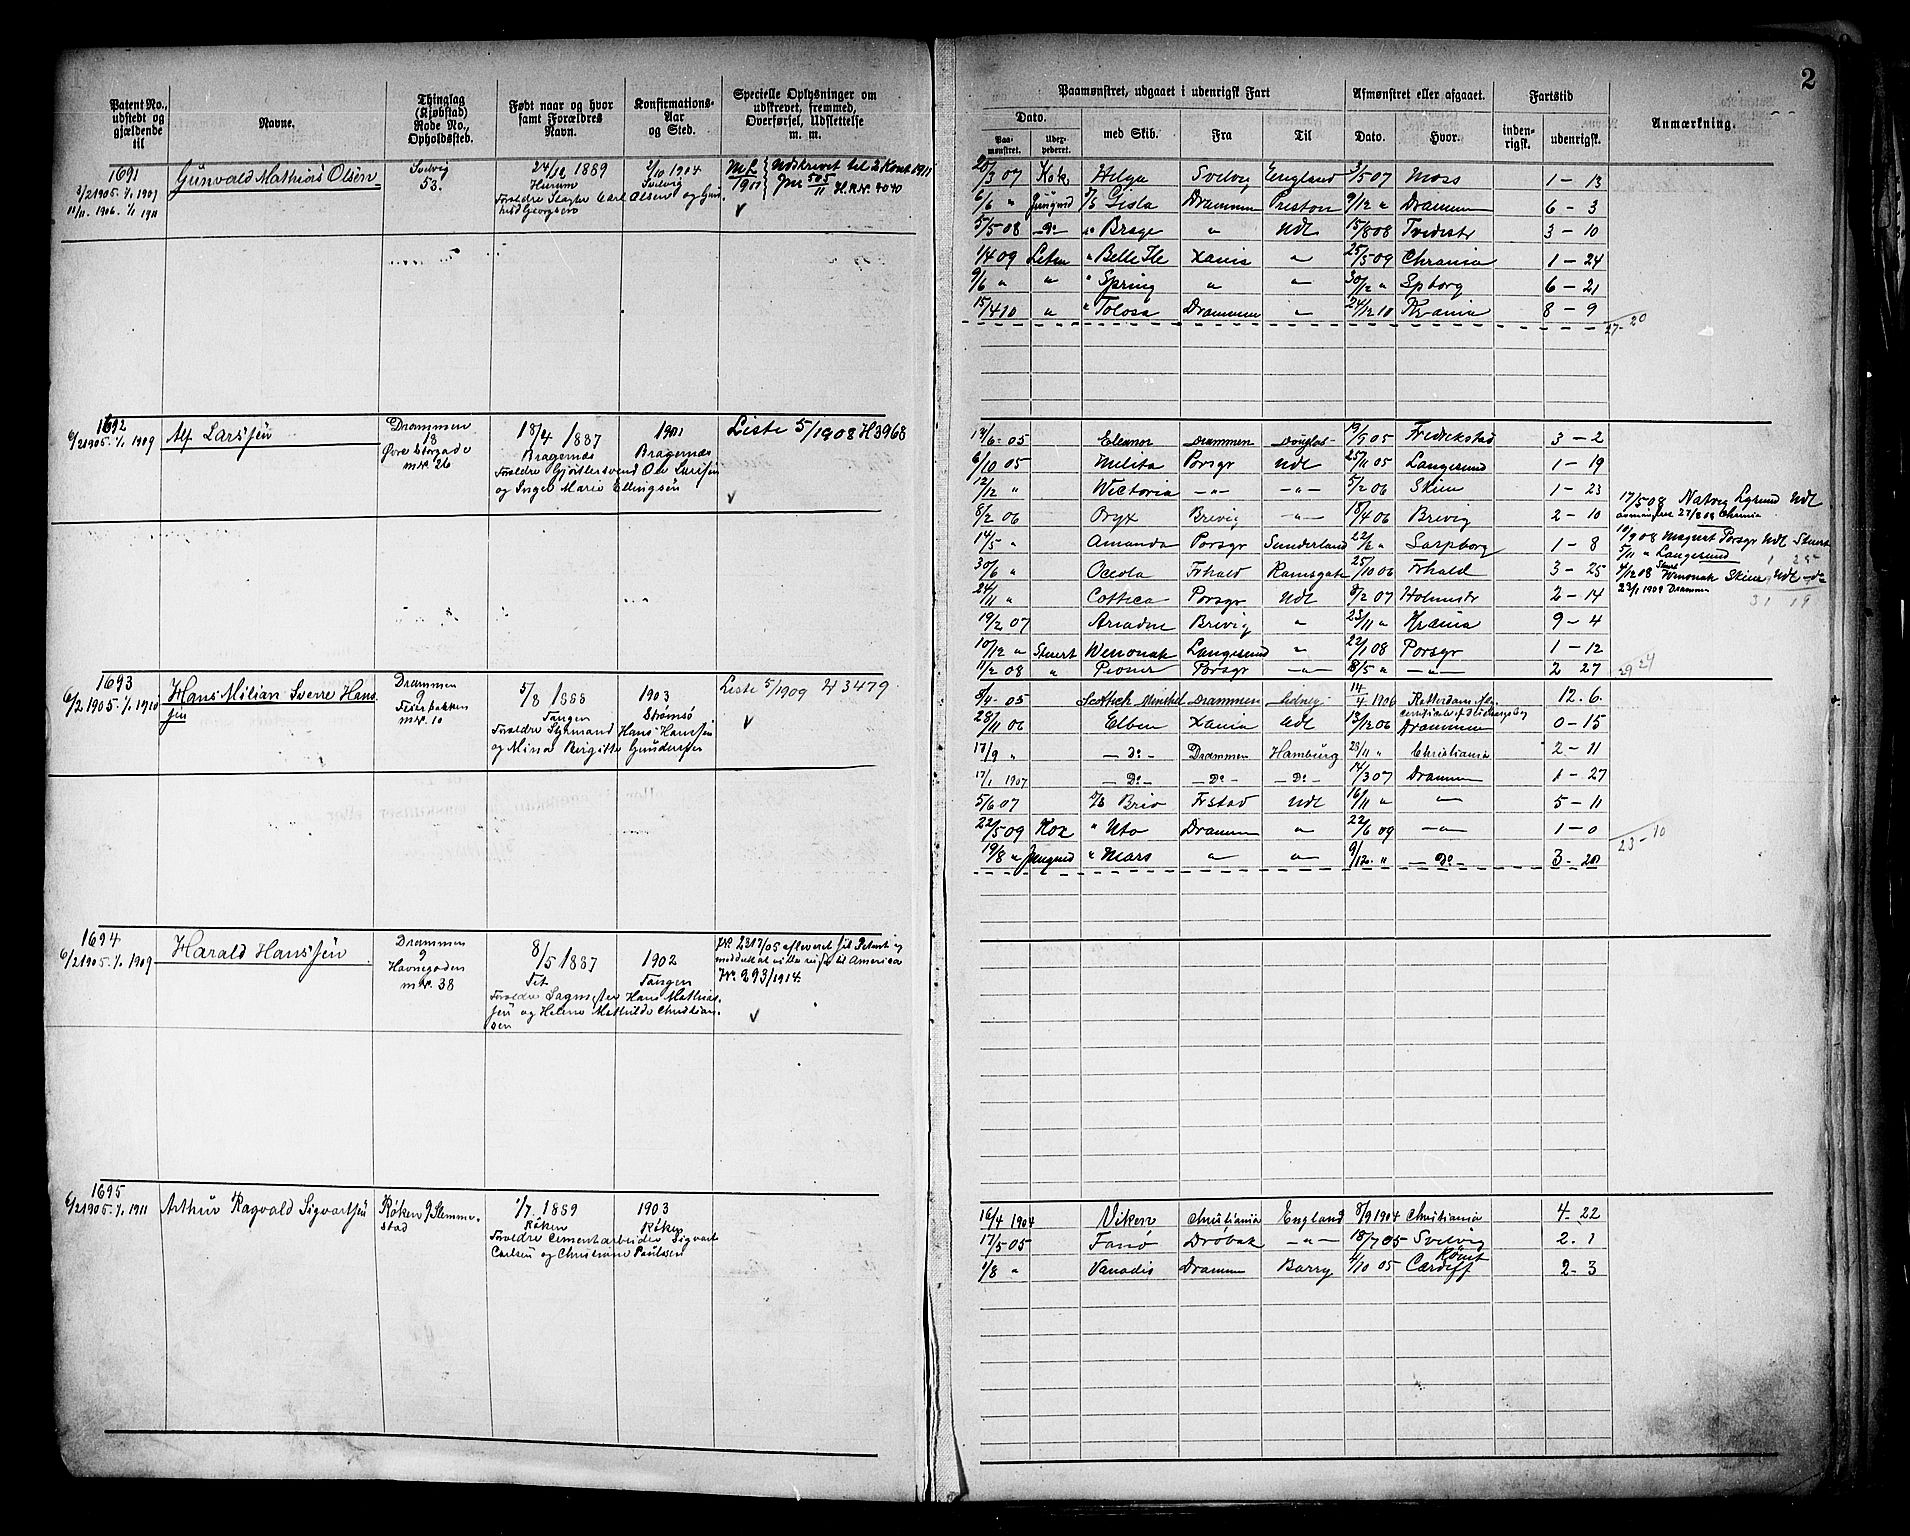 2
Patent No., udstedt og gjældende til
Navne.
Thinglag (Kjøbstad) Rode No., Opholdssted.
Født naar og hvor samt Forældres Navn.
Konfirmations-Aar og Sted.
Specielle Oplysninger om udskrevet, fremmed, Overførsel, Udslettelse m. m.
Paamønstret, udgaaet i udenrigsk Fart
Afmønstret eller afgaaet.
Fartstid
Anmærkning.
Dato.
Paa-mønstret.
med Skib.
Fra
Til
Dato.
Hvor.
inden-rigsk.
udenrigsk.
1691
3/2 1905. 1/1 1907
11/11. 1906. 1/1 1911
Gunvald Mathias Olsen
Svelvig
53.
24/12 1889
Hurum
2/10 1904
Svelvig
Forældre Slagter Carl Olsen og
Udskrevet til 2 Kont 1911
Jnr 505/11 H.R.Nr. 4040
25/3 07 Kok Helga Svelvig England 3/5 07 Moss 1 - 13
6/6 " Jungmd D/S Gisla Drammen Preston 9/12 " Drammen 6 - 3
5/5 08 -Do- " Brage " Udl 15/8 08 Tvedestr 3 - 10
1/4 09 Letm " Belle Ile Xania " 25/5 09 Chrania 1 - 24
9/6 " " " Spring " " 30/12 " Spborg 6 - 21
15/4 10 " " Tolosa Drammen " 24/12 10 Krania 8 - 9
27 - 20
1692
6/2 1905. 1/1 1909
Alf Larssen
Drammen
13
Øvre Storgade
m.nr. 26
18/4 1887
Bragernæs
1901
Bragernæs
Forældre Gjørtlersvend Ole Larssen
og Inger Marie Ellingsen
Liste 5/1908 H3968
12/6 - 05 Eleanor Drammen Douglas 19/9 05 Fredrikstad 3 - 2
6/10 05 Melita Porsgr Udl 25/11 05 Langesund 1 - 19
12/12 " Wictoria -"- -"- 5/2 06 Skien 1 - 23
8/2 06 Oryx Brevig -"- 18/4 06 Brevig 2 - 10
14/5 " Amanda Porsgr Sunderland 22/6 " Sarpborg 1 - 8
30/6 " Oceola Frhald Ramsgate 25/10 06 Frhald 3 - 25
24/11 " Cottica Porsgr Udl 8/2 07 Holmestr 2 - 14
19/2 07 Ariadne Brevig " 23/11 " Krania 9 - 4
10/12 " Stuert Wenonah Langesund " 22/1 08 Porsgr 1 - 12
11/2 08 " Pioner Porsgr -"- 8/5 " -"- 2 27
17/5 08 Natvig Lgsund Udl
avmønstret 27/8 08 Chrania
10/9 08 Magnet Porsgr Udl Stuert
5/11 " Langesund
4/12 08 Wenonah Skien Udl -do
23/1 1909 Drammen
1 25
31 19
29 24
1693
6/2 1905. 1/1 1910
Hans Milian Sverre Hanssen
Drammen
9
m.nr. 10
5/8 1888
Tangen
1903
Strømsø
Forældre Styrmand Hans Hanssen
og Mina Birgitte Gundersen
Liste 5/1909 H 3479
8/4 - 05 Scottish Minstrel Drammen Sidney 14/4 1906 Rotterdam 12. 6.
28/11 06 Elben Xania Udl 13/12 06 Drammen 0 - 15
17/9 " - Do - Drammen Hamburg 28/11 " Christiania 2 - 11
17/1 1907 - Do - - Do - - Do - 14/3 07 Drammen 1 - 27
5/6 07 D/S Brio Frstad Udl 16/11 " -"- 5 - 11
22/5 09 Kok " Uto Drammen " 22/6 09 -"- 1 - 0
19/8 " Jungmd " Mars " " 9/12. " - Do - 3 - 20
23 - 10
1694
6/2 1905. 1/1 1909
Harald Hanssen
Drammen
9
Havnegaden
m.nr. 38
8/5 1887
Fet
1902
Tangen
Forældre Sagmester Hans Mathias-
sen og Helene Mathilde Christian-
sen
Nr. 2317/05 afleveret sit Patent og
meddelt at ville reise til America
Nr. 293/1914.
1695
6/2 1905. 1/1 1911
Arthur Ragvald Sigvartsen
Røken 9 Slemme-
stad
1/7. 1889
Røken
1903
Røken
Forældre Cementarbeider Sigvart
Carlsen og Christiane Paulsen
16/4 1904 Viken Christiania England 8/9 1904 Christiania 4 - 22
17/5 05 Fanø Drøbak -"- 18/7 05 Svelvig 2. 1
1/8 " Vanadis Drammen Barry 4/10 05 Rømt Cardiff 2 - 3